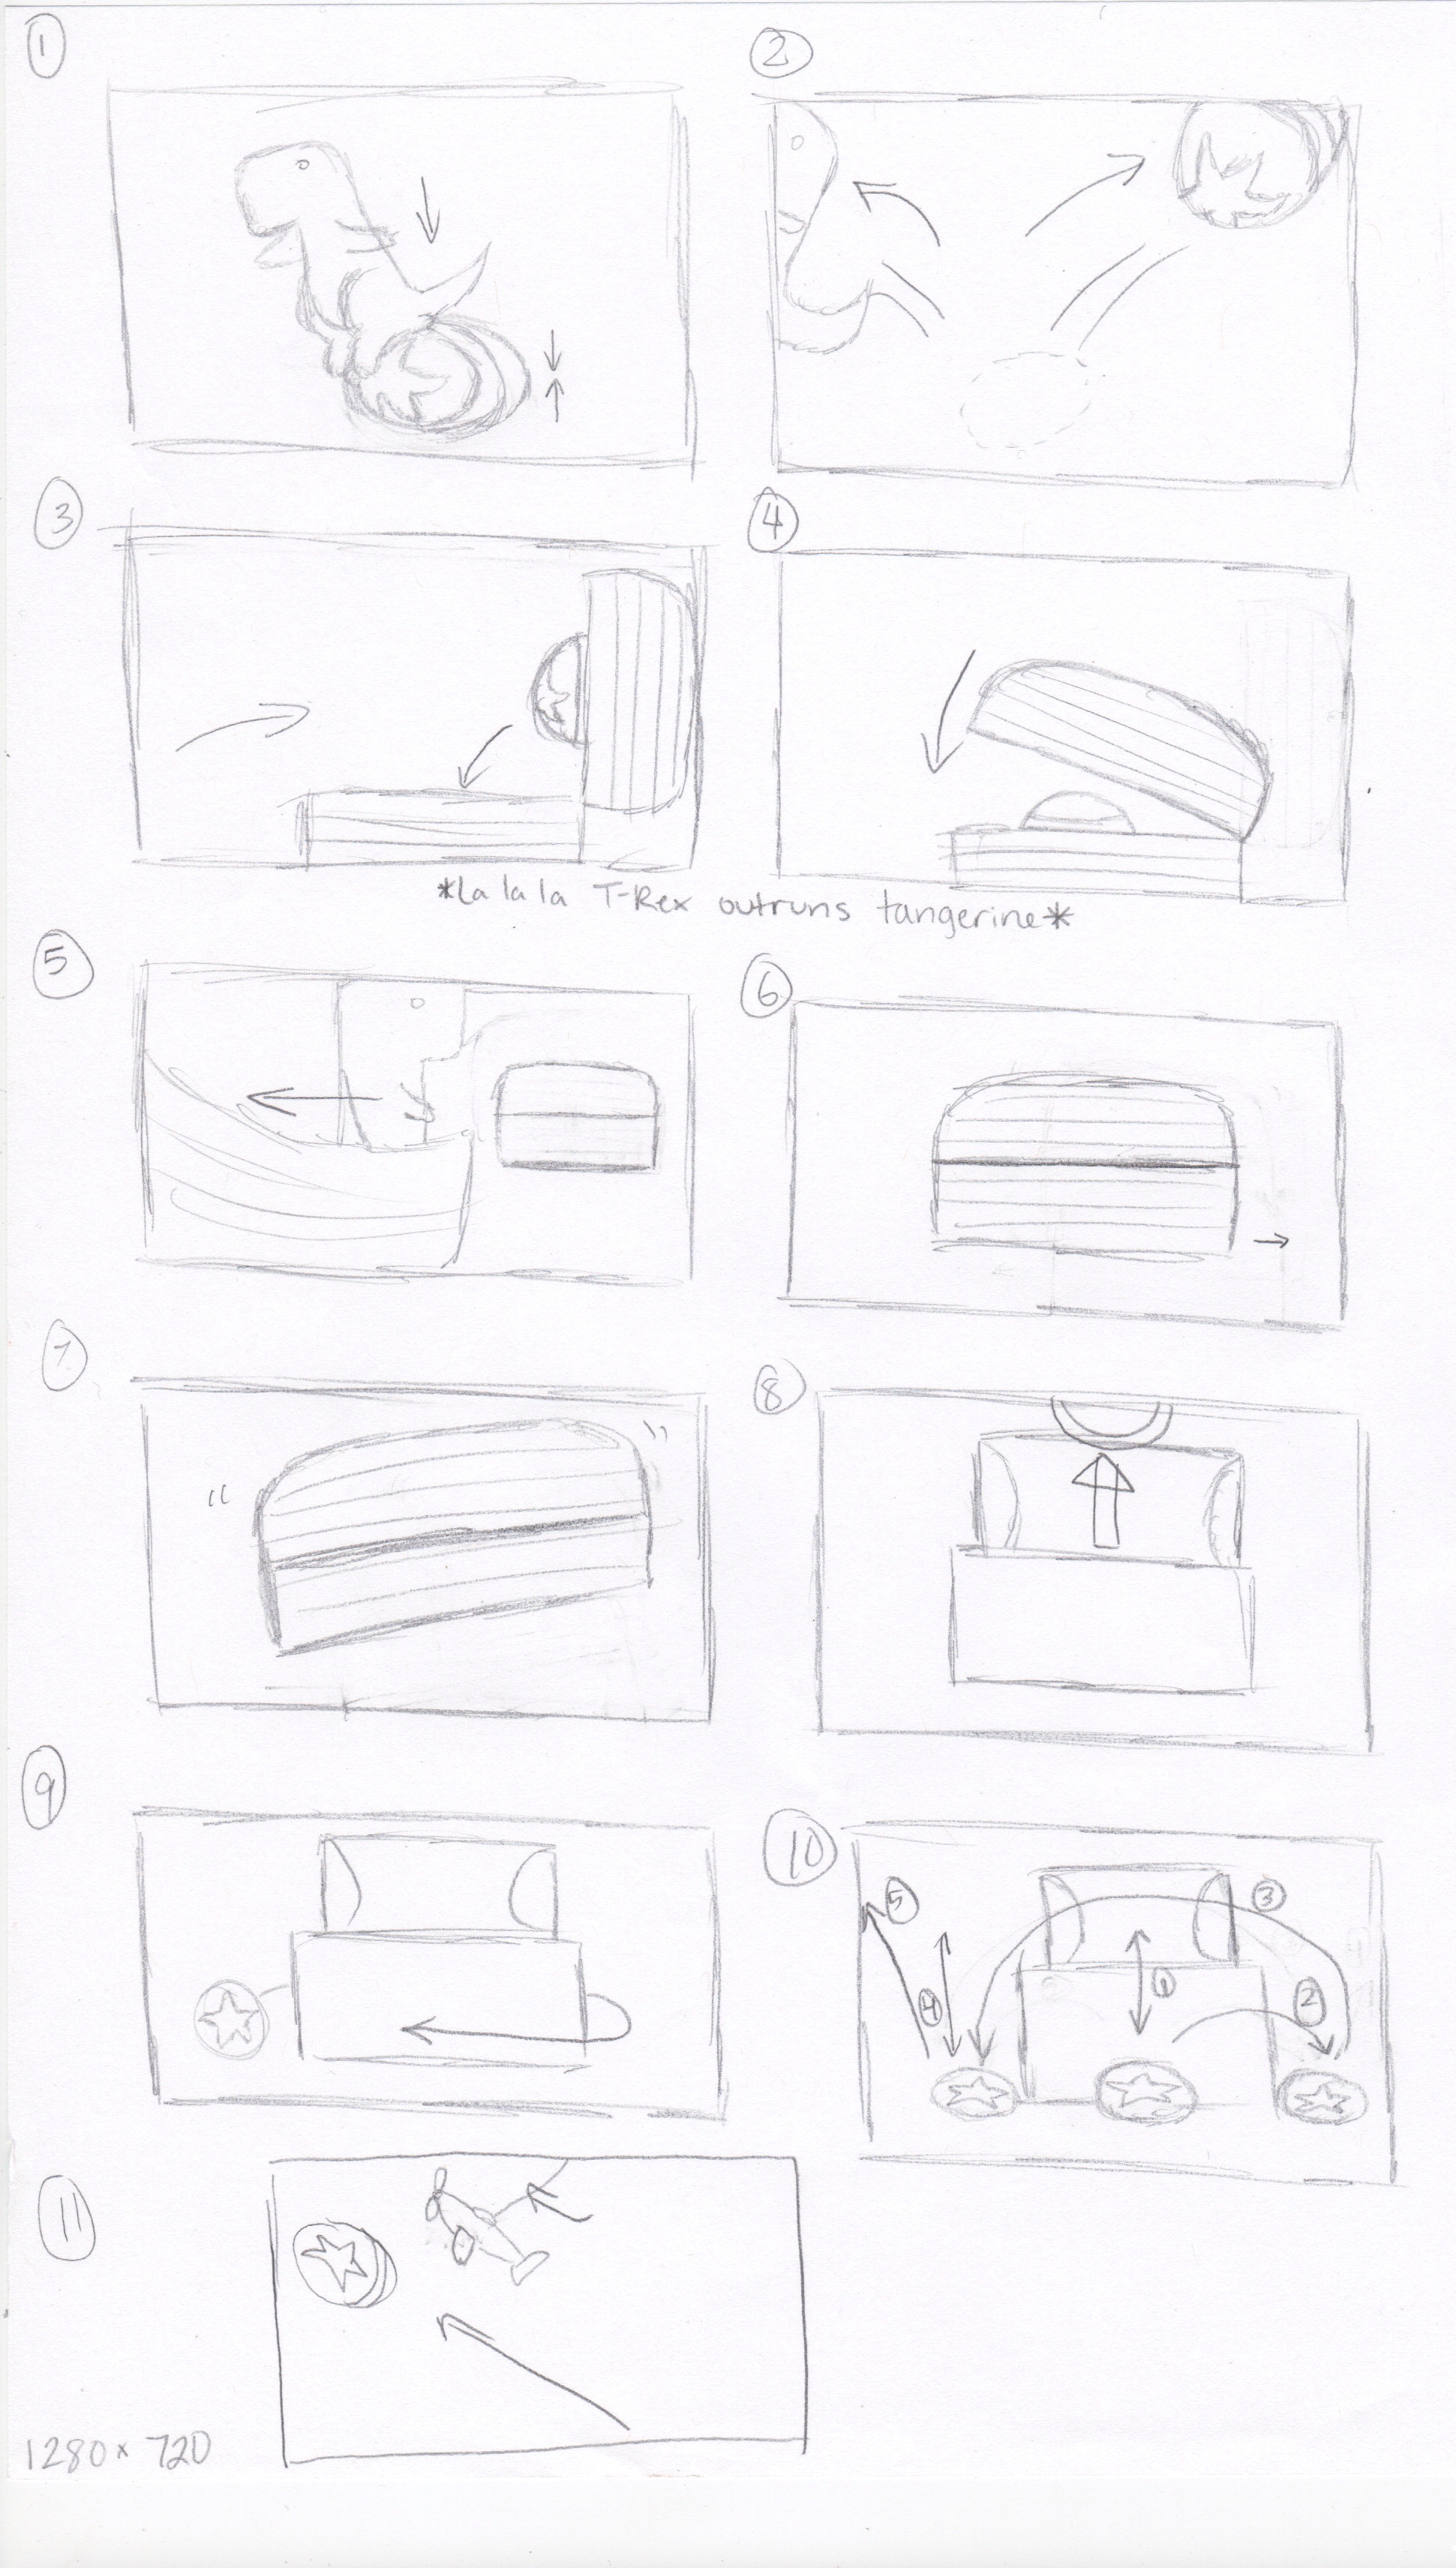 1
2
3
4
*La la la T-Rex outruns tangerine*
5
6
7
8
9
10
5
3
4
1
2
11
1280 x 720